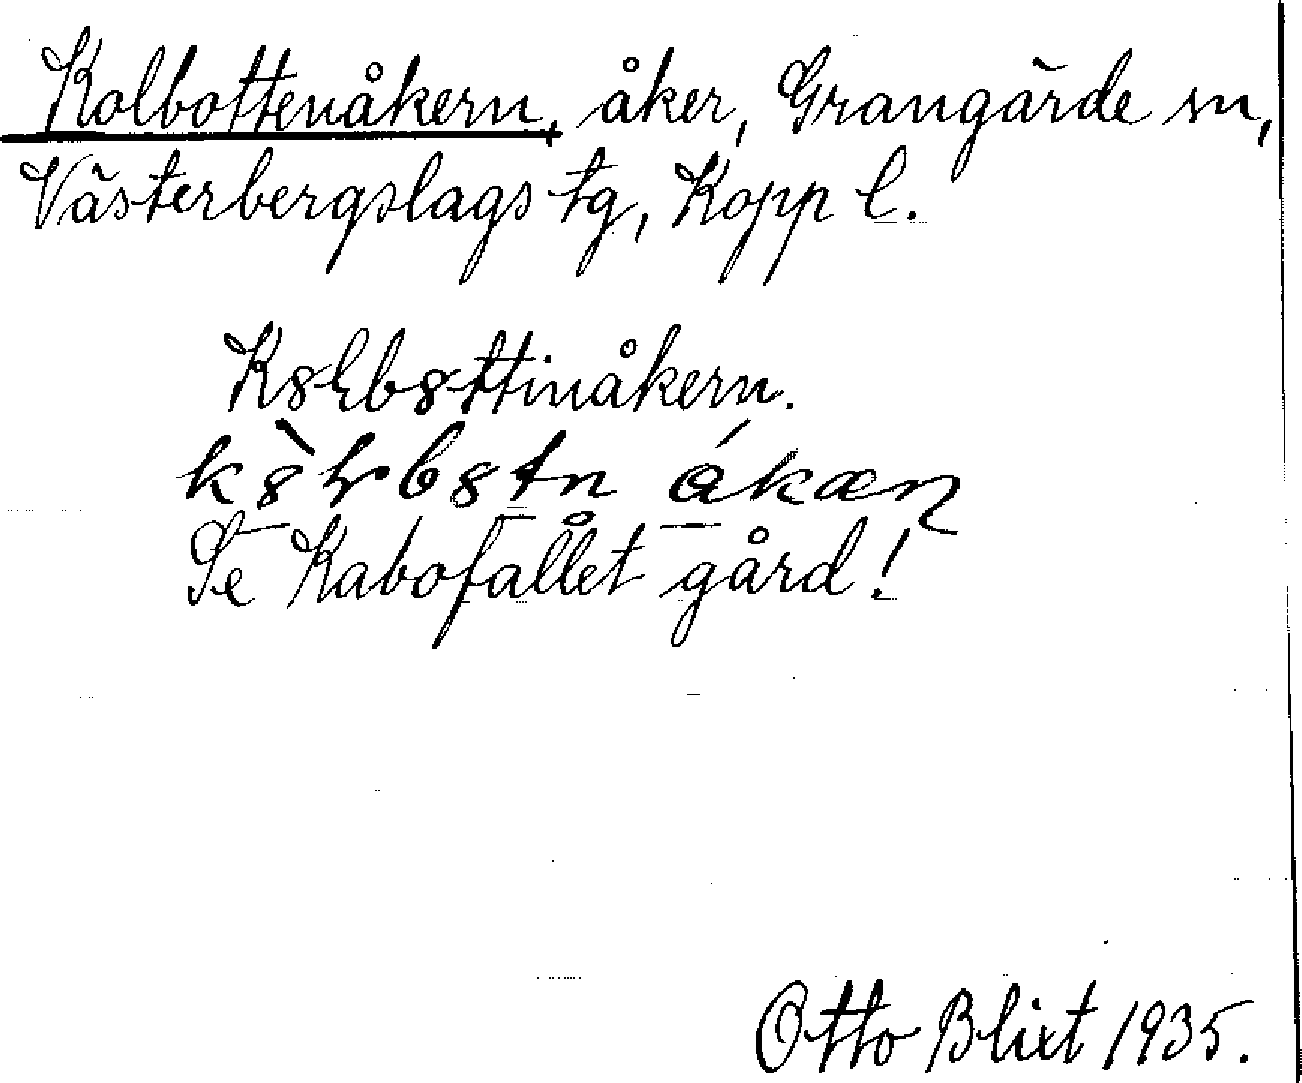 Kolbottenåkern, åker, Grangärde sn,
Västerbergslags tg, Kopp l.
K8Ɫb8ttinåkern.
Se Kabofallet gård!
Otto Blixt 1935.